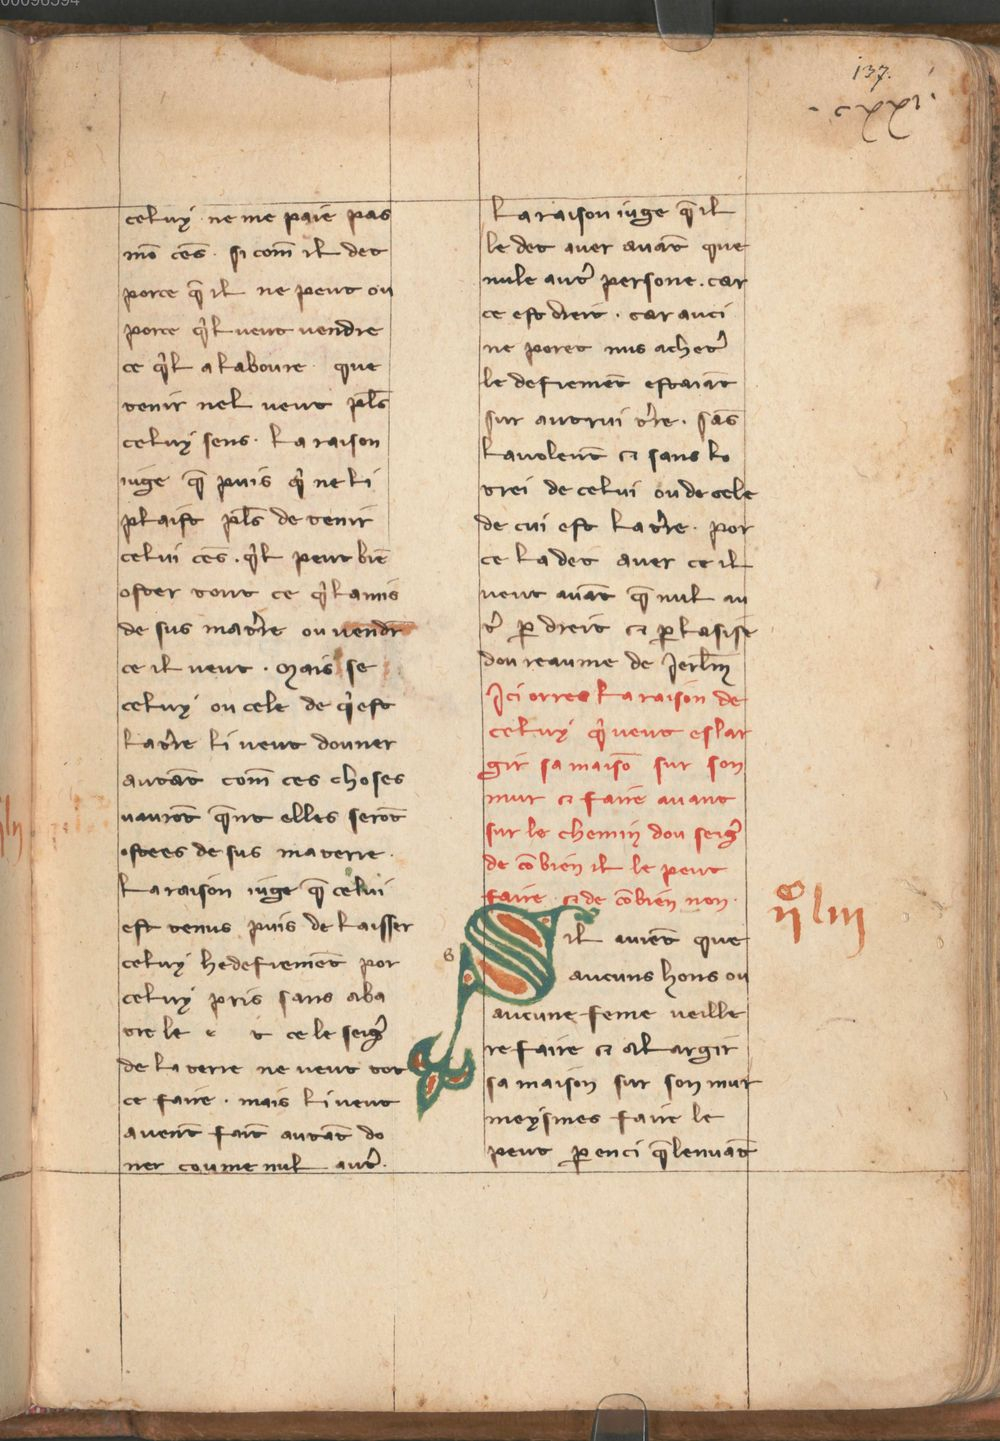 00096594
137.
.cxxi.
celuy ne me paie pas
mō cēs. si com̄ il det
porce q̄ il ne peut ou
porce q'l veut vendre
ce q'l a laboure que
tenir nel veut pl̄s
celuy sens. La raison
iuge q̄ puis q' ne li
plaist pl̄s de tenir
celui cēs. q'l peut biē
oster tout ce q'l a mis
de sus ma t're ou vendr̄
ce il veut. Mais se
celuy ou cele de q' est
la t're li veut donner
autāt com̄ ces choses
vaurōt q̄nt elles serōt
ostees de sus ma terre.
La raison iuge q̄ celui
est tenus puis de laisser
celuy hedefiemēt por
celuy pris sans aba
tre le e t ce le seig'
de la terre ne veut tot
ce faire. mais li veut
avenīt fait autāt do
ner coume nul aut'.
La raison iuge q̄ il
le det aver avāt que
nule aut' persone. car
ce est dreit. car auci
ne poret nus achet'
le defiemēt estaiāt
sur autrui t're. sās
la volenīt et sans lo
trei de celui ou de cele
de cui est la t're. por
ce la det aver ce il
veut avāt q̄ nul au
t' p̄ dreit et p̄ lasise
dou reaume de Jerl̄m
Ici orres la raison de
celuy q' veut eslar
gir sa maisō sur son
mur et faire avant
sur le chemin dou seig'
de cōbien il le peut
faire et de cōbien non.
s
Sil avient que
aucuns hons ou
aucune feme veille
refaire et alargir
sa maison sur son mur
meysmes faire le
peut p̄ enci q̄ lenvāt